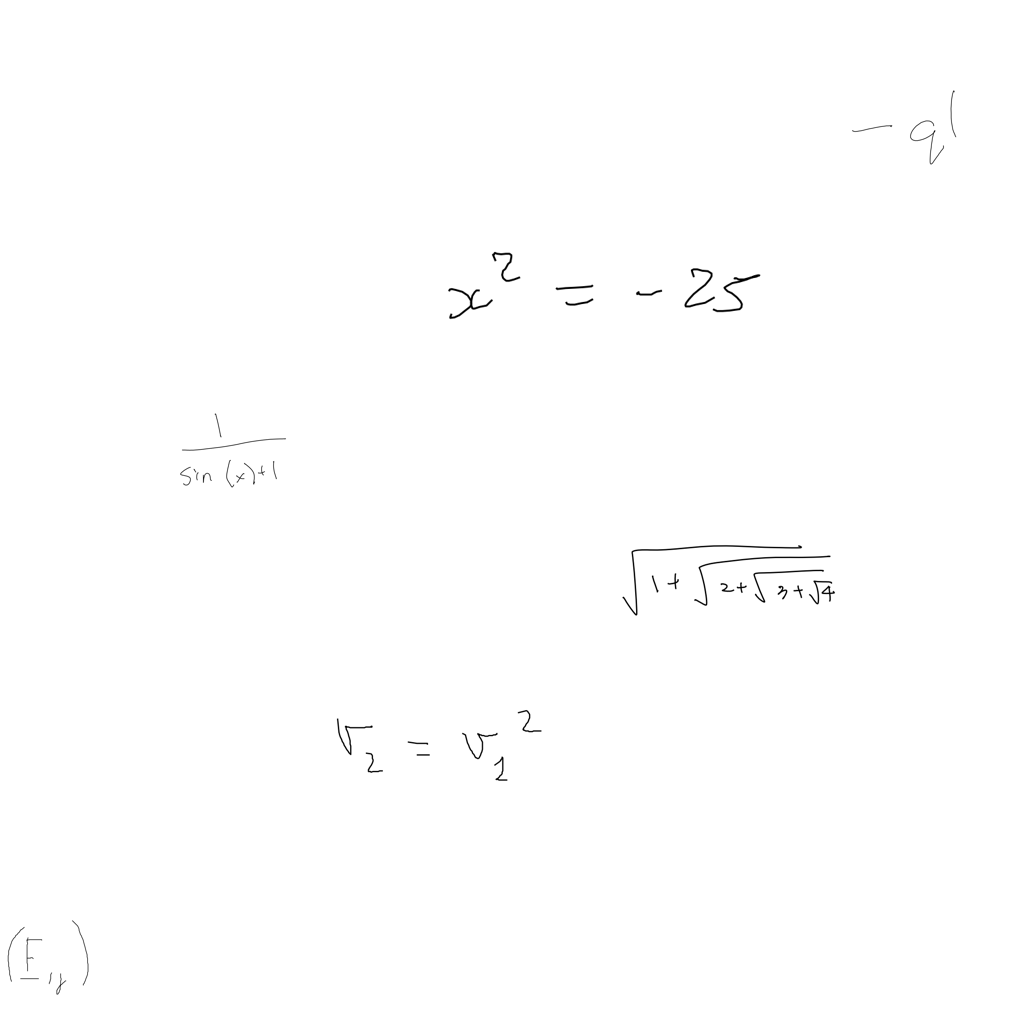 − q^|
x² = - 25
1/(sin (x)+1)
√(1+√(2+√(3+√4)))
v₂ = v₁²
(E̲,y)